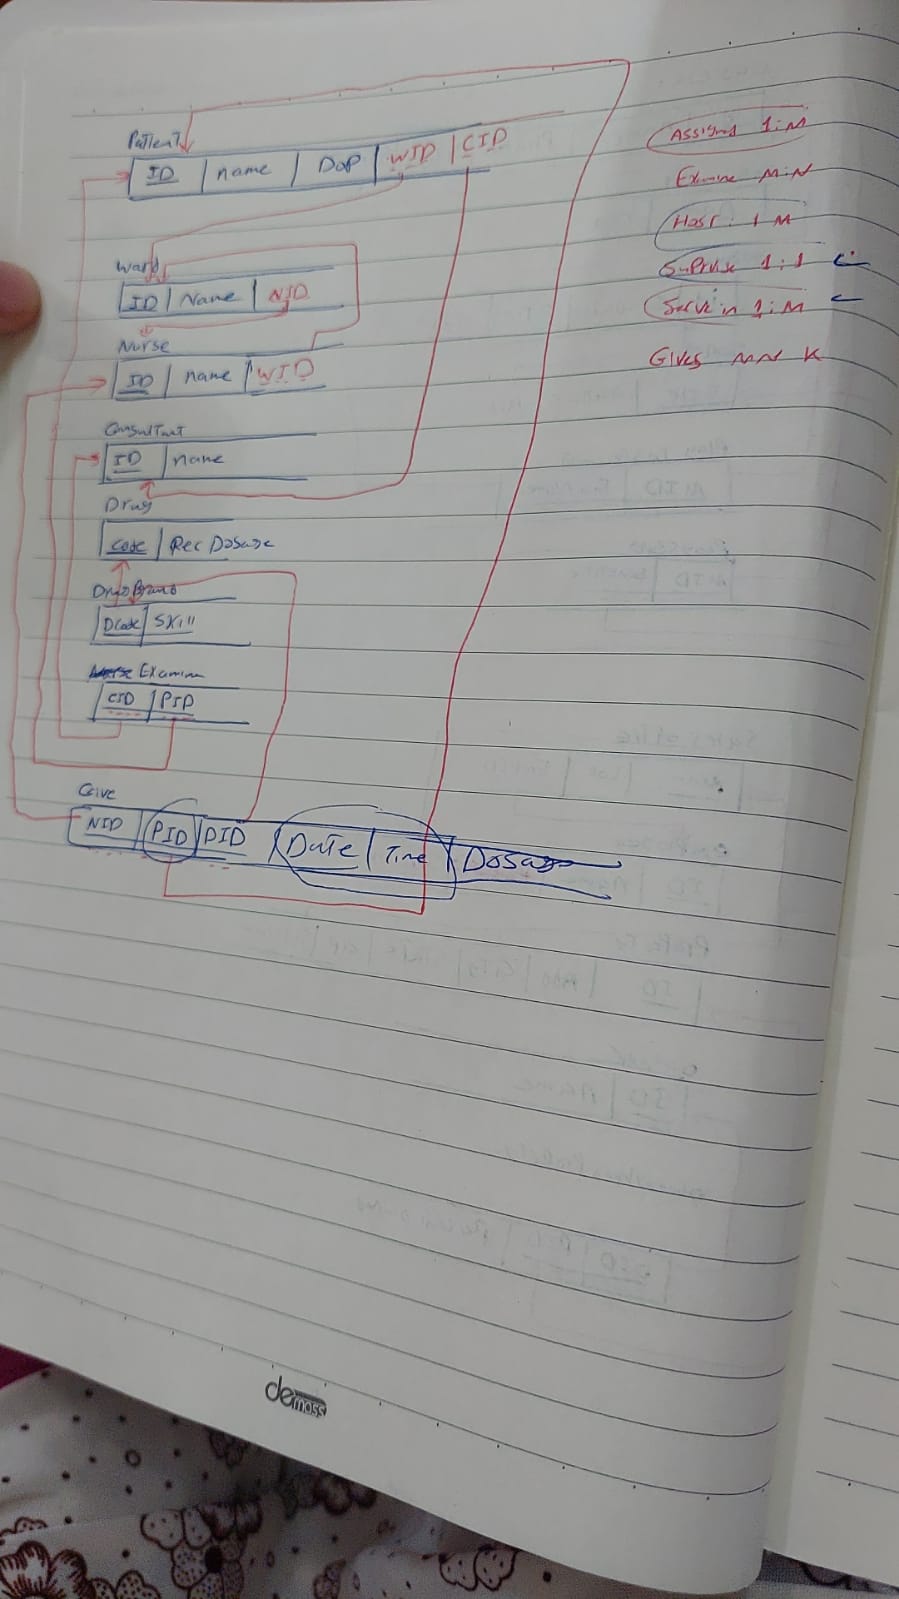 Patient
ID | name | DoP | WID | CID
Ward
ID | Name | NID
Nurse
ID | name | WID
Consultant
ID | name
Drug
Code | Rec Dosage
Drug Brand
DCode
Examine
CID | PID
Give
NID | PID | DID | Date | Time | Dosage
Assigned 1:M
Examine M:N
Host 1 M
1:1
Serve in 1:M
Gives M N K
demass